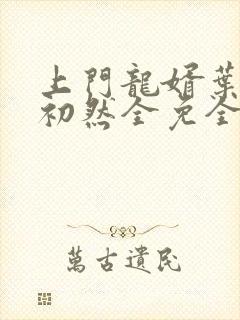 上門龍婿葉
初然全免全
萬古遺民